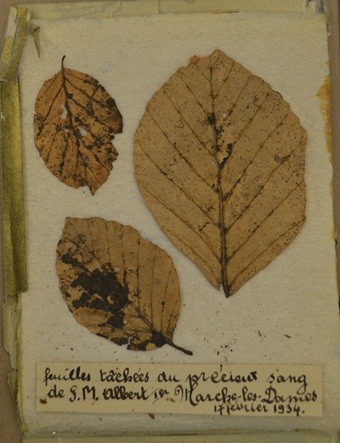 feuilles tachées du précieux sang
de S.M. Albert 1er Marche-les-Dames
17 février 1934.